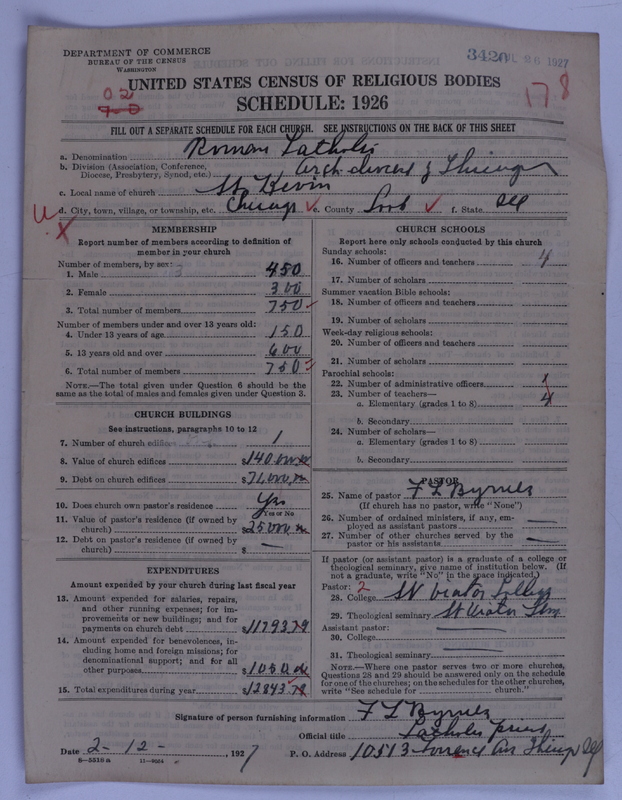 DEPARTMENT OF COMMERCE
BUREAU OF THE CENSUS
WASHINGTON
3420 JUL 26 1927
02
7-0
178
UNITED STATES CENSUS OF RELIGIOUS BODIES
SCHEDULE: 1926
FILL OUT A SEPARATE SCHEDULE FOR EACH CHURCH. SEE INSTRUCTIONS ON THE BACK OF THIS SHEET
a. Denomination Roman Catholic
b. Division (Association, Conference, Diocese, Presbytery, Synod, etc.) Archdiocese of Chicago
c. Local name of church St Kevin
d. City, town, village, or township, etc. Chicago e. County Cook f. State Ill
MEMBERSHIP
Report number of members according to definition of member in your church
Number of members, by sex:
1. Male 450
2. Female 300
3. Total number of members 750
Number of members under and over 13 years old:
4. Under 13 years of age 150
5. 13 years old and over 600
6. Total number of members 750
NOTE.—The total given under Question 6 should be the same as the total of males and females given under Question 3.
CHURCH BUILDINGS
See instructions, paragraphs 10 to 12
7. Number of church edifices 1
8. Value of church edifices $140,000.00
9. Debt on church edifices $71,000.00
10. Does church own pastor's residence? Yes
Yes or No
11. Value of pastor's residence (if owned by church) $25000.00
12. Debt on pastor's residence (if owned by church) $ —
EXPENDITURES
Amount expended by your church during last fiscal year
13. Amount expended for salaries, repairs, and other running expenses; for improvements or new buildings; and for payments on church debt $11793.79
14. Amount expended for benevolences, including home and foreign missions; for denominational support; and for all other purposes $1050.00
15. Total expenditures during year $12843.79
CHURCH SCHOOLS
Report here only schools conducted by this church
Sunday schools:
16. Number of officers and teachers 4
17. Number of scholars
Summer vacation Bible schools:
18. Number of officers and teachers
19. Number of scholars
Week-day religious schools:
20. Number of officers and teachers
21. Number of scholars
Parochial schools:
22. Number of administrative officers 1
23. Number of teachers—
a. Elementary (grades 1 to 8) 4
b. Secondary
24. Number of scholars—
a. Elementary (grades 1 to 8)
b. Secondary
PASTOR
25. Name of pastor F L Byrnes
(If church has no pastor, write "None")
26. Number of ordained ministers, if any, employed as assistant pastors —
27. Number of other churches served by the pastor or his assistants —
If pastor (or assistant pastor) is a graduate of a college or theological seminary, give name of institution below. (If not a graduate, write "No" in the space indicated.)
Pastor: 2
28. College St Viator College
29. Theological seminary St Viator Sem
Assistant pastor:
30. College
31. Theological seminary
NOTE.—Where one pastor serves two or more churches, Questions 28 and 29 should be answered only on the schedule for one of the churches; on the schedules for the other churches, write "See schedule for church."
Signature of person furnishing information F L Byrnes
Official title Catholic priest
Date 2-12-, 1927 P. O. Address 10513 Torrence Av Chicago Ill
8—5518a 11—9054